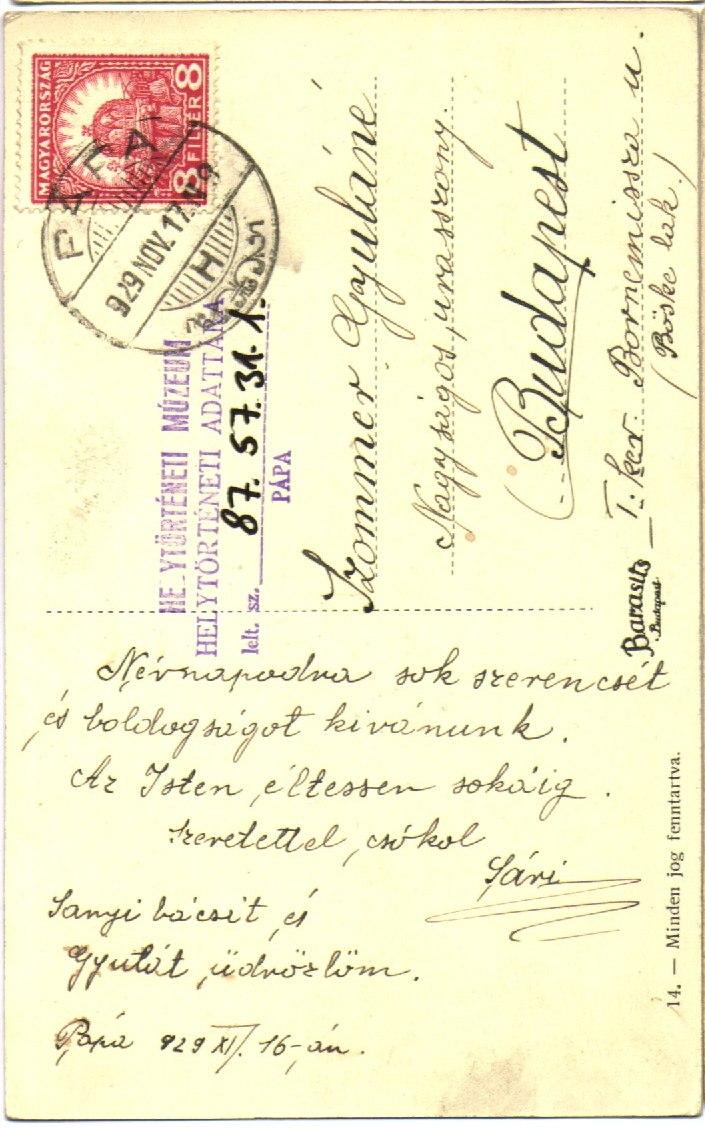 MAGYARORSZÁG
8 FILLÉR 8
PÁPA
929 NOV. 17
H
HELYTÖRTÉNETI MÚZEUM
HELYTÖRTÉNETI ADATTÁRA
lelt. sz. 87. 57. 31. 1.
PÁPA
Szommer Gyuláné
Nagyságos urasszony.
Budapest
I. ker Bornemissza u.
(Böske lak.)
Barasits
Budapest
Névnapodra sok szerencsét
és boldogságot kivánunk.
Az Isten éltessen sokáig.
Szeretettel csókol
Sári
Sanyi bácsit és
Gyulát üdvözlöm.
Pápá 929 XI/. 16-án.
14. — Minden jog fenntartva.